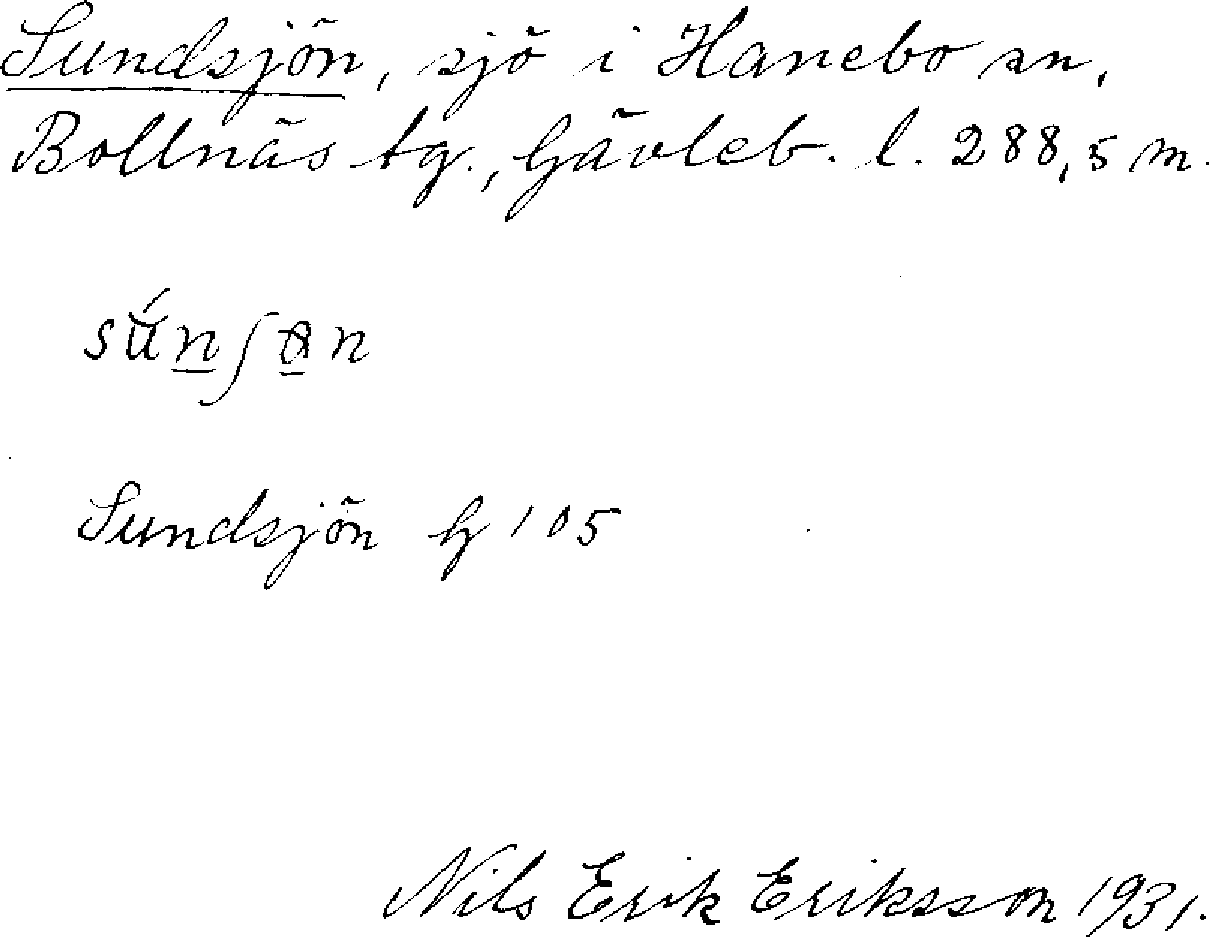 Sundsjön, sjö i Hanebo sn,
Bollnäs tg., Gävleb. l. 288,5 m.
Sundsjön G 105
Nils Erik Eriksson 1931.